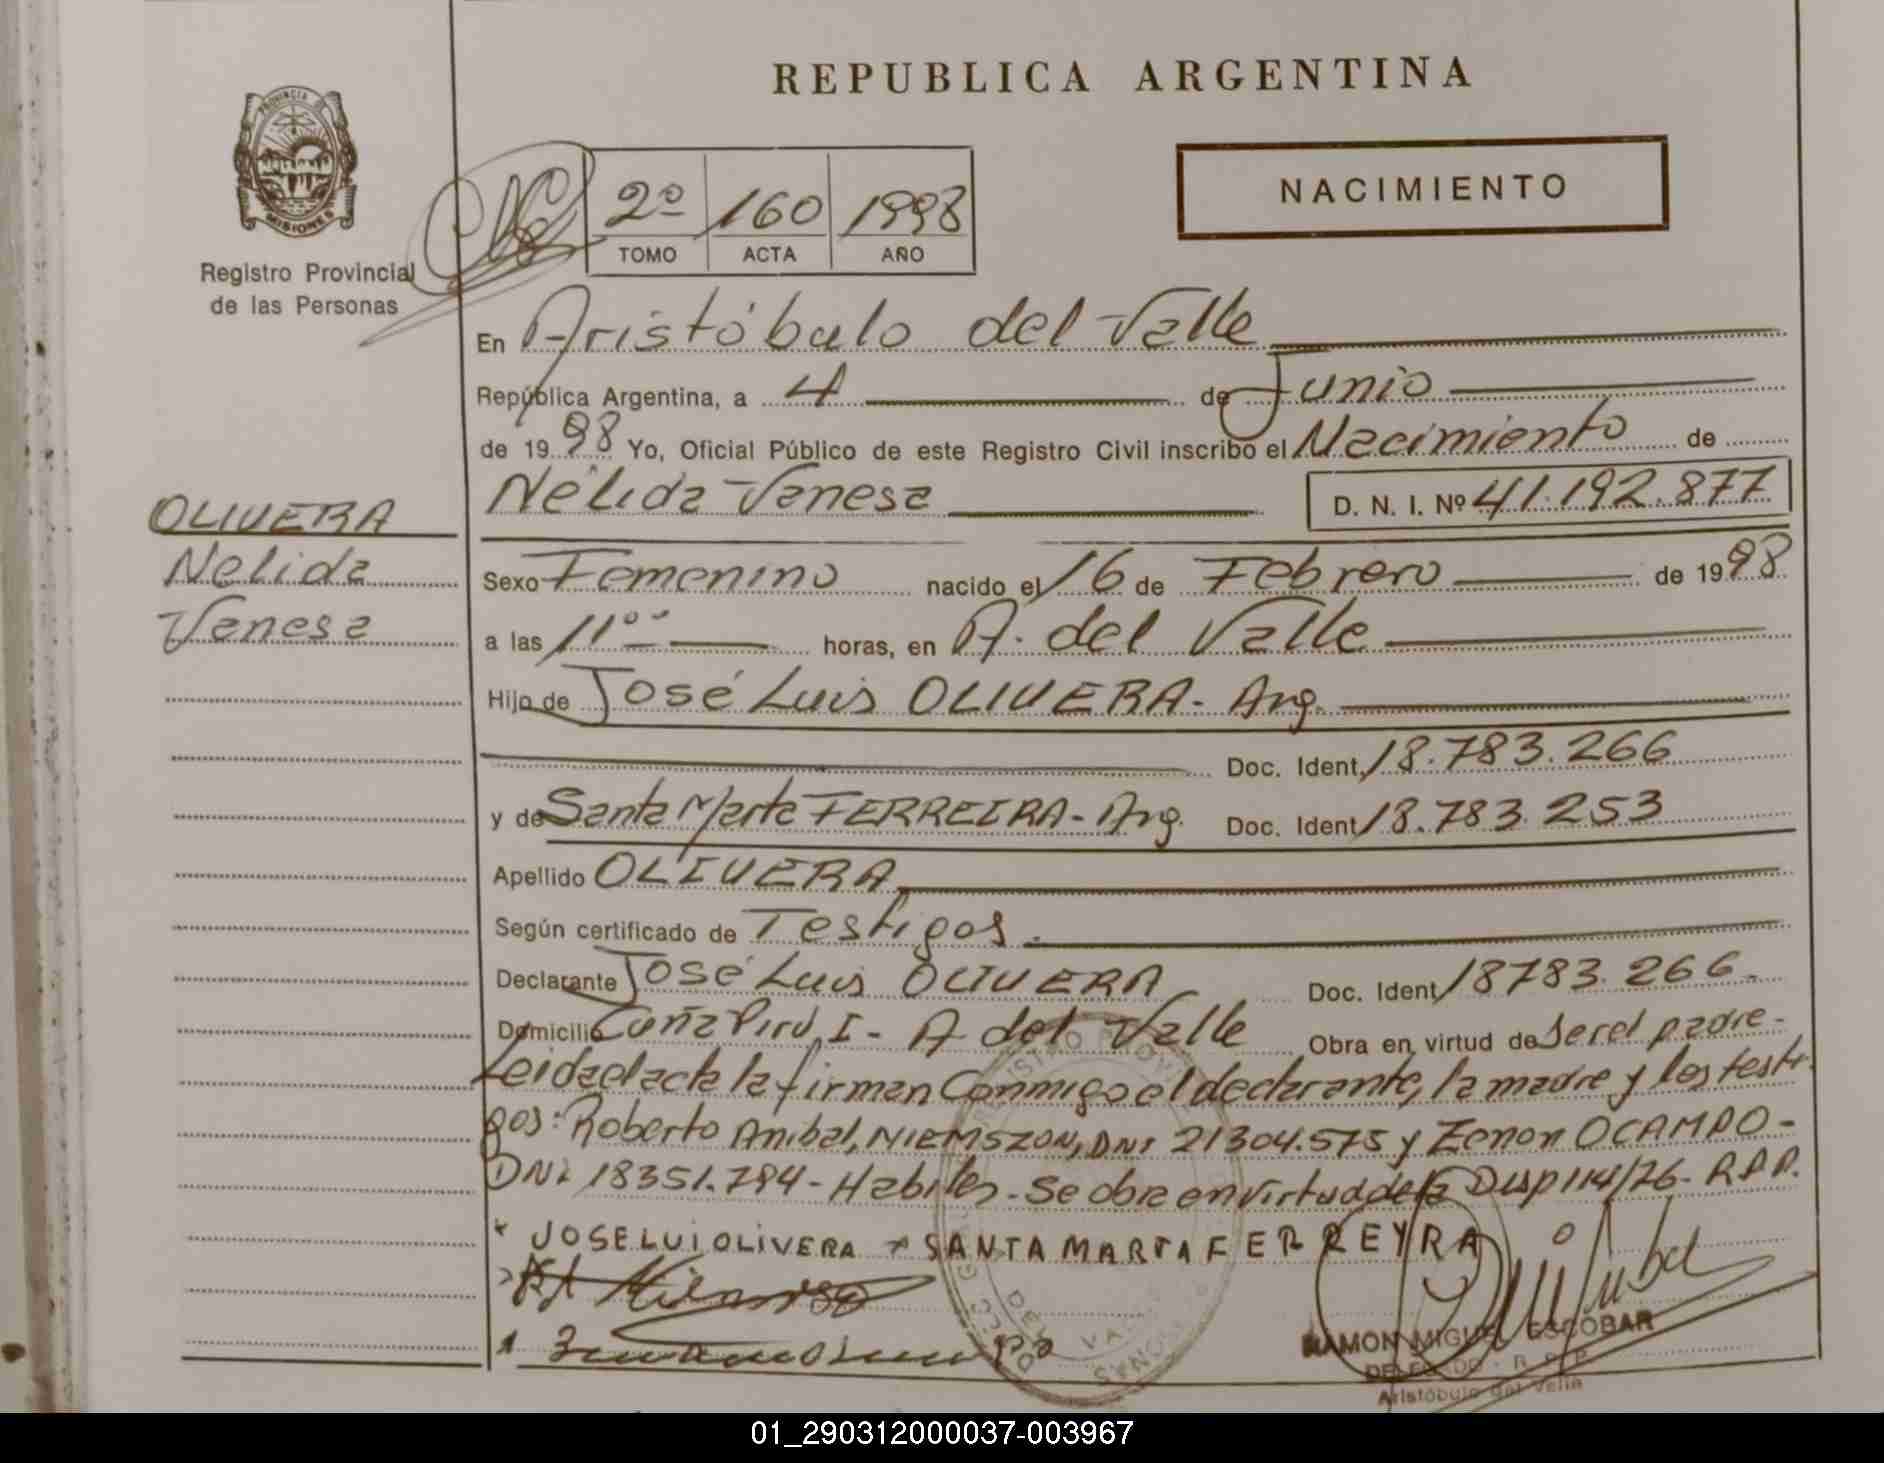 REPUBLICA ARGENTINA
PROVINCIA DE
MISIONES
Registro Provincial
de las Personas
NACIMIENTO
2º 160 1998
TOMO ACTA AÑO
En Aristóbulo del Valle
República Argentina, a 4 de Junio
de 1998 Yo, Oficial Público de este Registro Civil inscribo el Nacimiento de
Nélida Vanesa D. N. I. Nº 41.192.877
OLIVERA
Nelida
Vanesa
Sexo Femenino nacido el 16 de Febrero de 1998
a las 11ºº horas, en A. del Valle
Hijo de José Luis OLIVERA - Arg.
Doc. Ident. 18.783.266
y de Santa Marta FERREIRA - Arg. Doc. Ident. 18.783.253
Apellido OLIVERA
Según certificado de Testigos.
Declarante José Luis OLIVERA Doc. Ident. 18783.266.
Domicilio Cuña Pirú I - A del Valle Obra en virtud de Ser el padre -
Leida el acta la firman Conmigo el declarante, la madre y los testi
gos: Roberto Anibal, NIEMSZON, DNI 21304.575 y Zenon OCAMPO -
DNi 18351.784 - Habiles - Se obra en virtud de la Disp 114/76 - R.P.P.
JOSE LUI OLIVERA SANTA MARTA FERREYRA
RAMON MIGUEL ESCOBAR
DELEGADO - R. P. P.
Aristóbulo del Valle
01_290312000037-003967